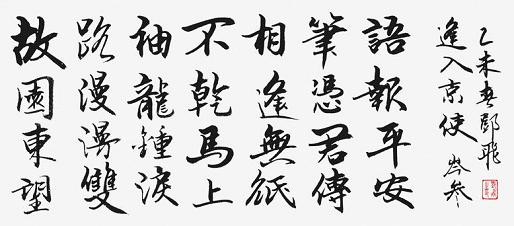 故園東望
路漫漫雙
袖龍鍾淚
不乾馬上
相逢無紙
筆憑君傳
語報平安
逢入京使 岑參
乙未春